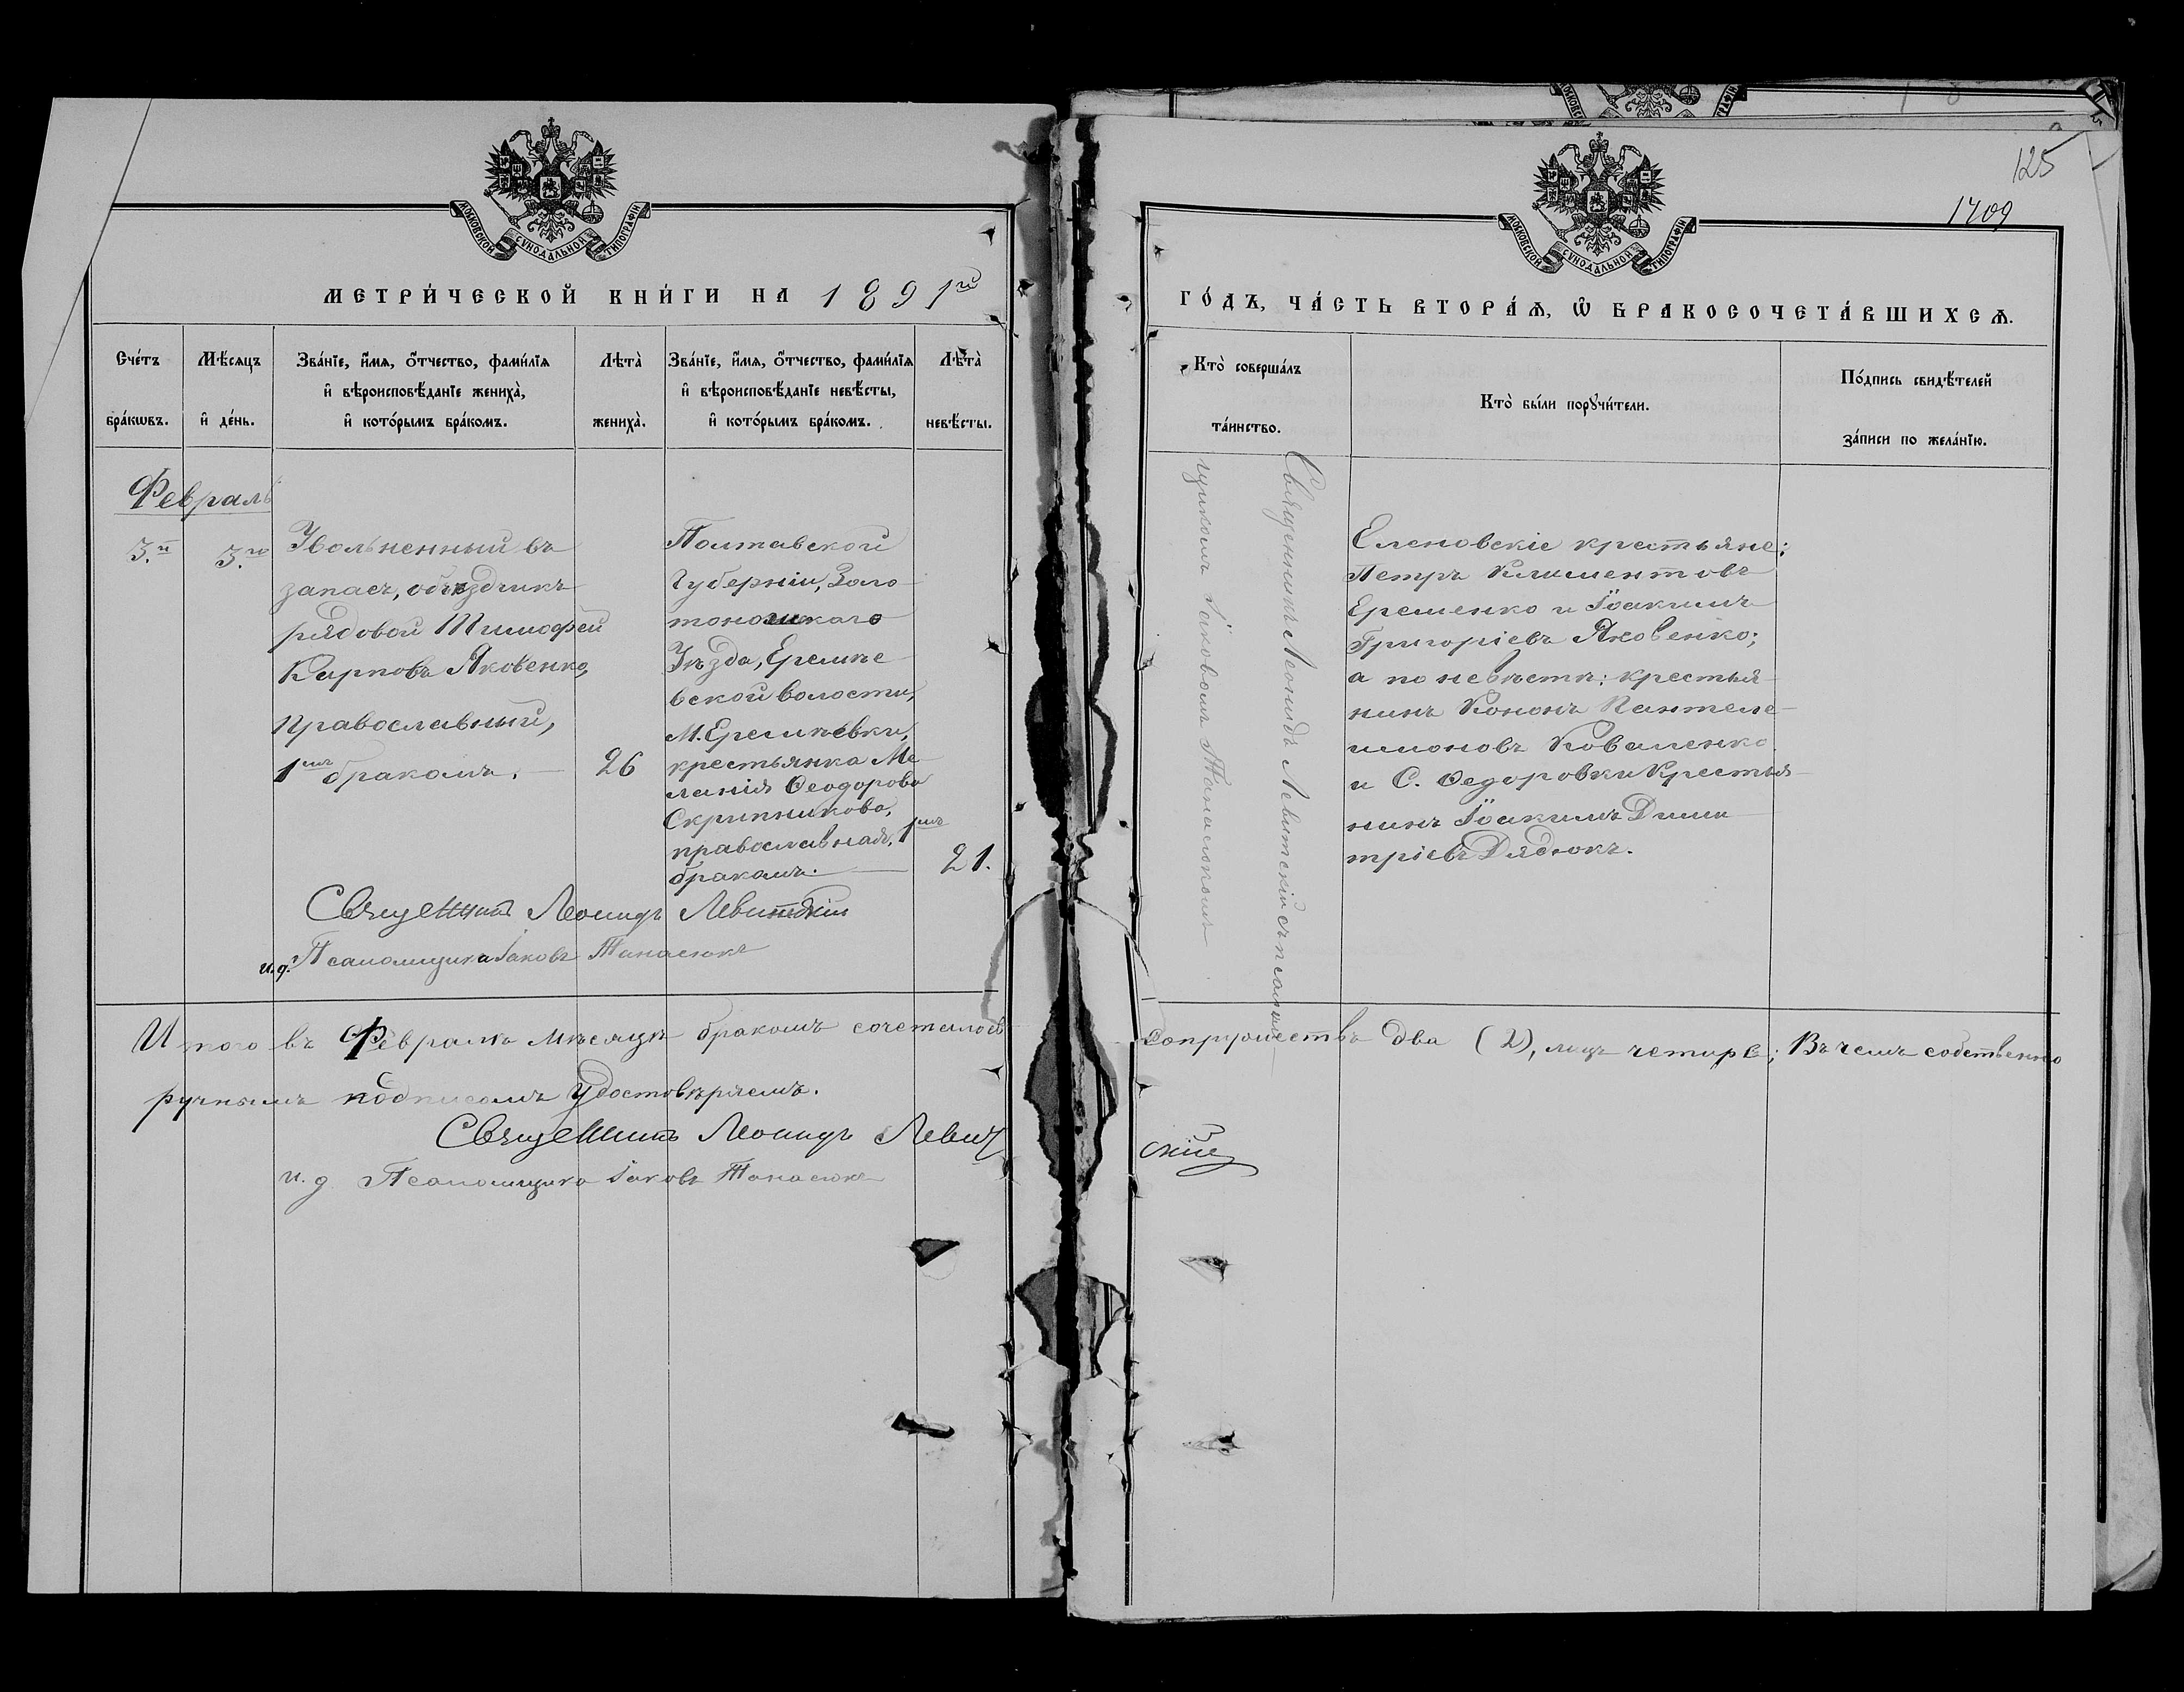 125
1709
МОСКОВСКОЙ СУНОДАЛЬНОЙ ТИПОГРАФІИ
МЕТРИ́ЧЕСКОЙ КНИ́ГИ НА 1891й
Сче́тъ бра́кѡвъ.
Мѣ́сяцъ и҆ де́нь.
Зва́нїе, и҆́мѧ, ѻ҆́тчество, фами́лїѧ и҆ вѣроисповѣ́данїе жениха̀, и҆ кото́рымъ бра́комъ.
Лѣта̀ жениха̀.
Зва́нїе, и҆́мѧ, ѻ҆́тчество, фами́лїѧ и҆ вѣроисповѣ́данїе невѣ́сты, и҆ кото́рымъ бра́комъ.
Лѣта̀ невѣ́сты.
Февраль
3.й
3.го
Увольненный въ
запасъ, объѣздчикъ
рядовой Тимофей
Карповъ Яковенко,
православный,
1мъ бракомъ.
26
Полтавской
Губерніи, Золо-
тоношскаго
Уѣзда, Еремѣе-
вской волости,
М. Еремѣевки,
крестьянка Ме-
ланія Ѳеодорова
Скрипникова,
православная, 1мъ
бракомъ.
21.
Священникъ Леонидъ Левитскій
и.д. Псаломщика Іаковъ Танасюкъ
Итого въ Февралѣ мѣсяцѣ бракомъ сочеталось
ручнымъ подписомъ удостовѣряемъ.
Священникъ Леонидъ Левит
и.д. Псаломщика Іаковъ Танасюкъ
МОСКОВСКОЙ СУНОДАЛЬНОЙ ТИПОГРАФІИ
ГО́ДЪ, ЧА́СТЬ ВТОРА́Ѧ, Ѡ҆ БРАКОСОЧЕТА́ВШИХСѦ.
Кто̀ соверша́лъ та́инство.
Кто̀ бы́ли порꙋчи́тели.
По́дпись свидѣ́телей за́писи по жела́нїю.
Священникъ Леонидъ Левитскій съ псалом-
щикомъ Іаковомъ Танасюкомъ
Еленовскіе крестьяне:
Петръ Климентовъ
Еременко и Іоакимъ
Григоріевъ Яковенко;
а по невѣстѣ: крестья-
нинъ Кононъ Пантеле-
имоновъ Коваленко
и С. Ѳедоровки Крестья-
нинъ Іоакимъ Дими-
тріевъ Дядюкъ.
супружествъ два (2), лицъ четире; Въ чемъ собственно
скій